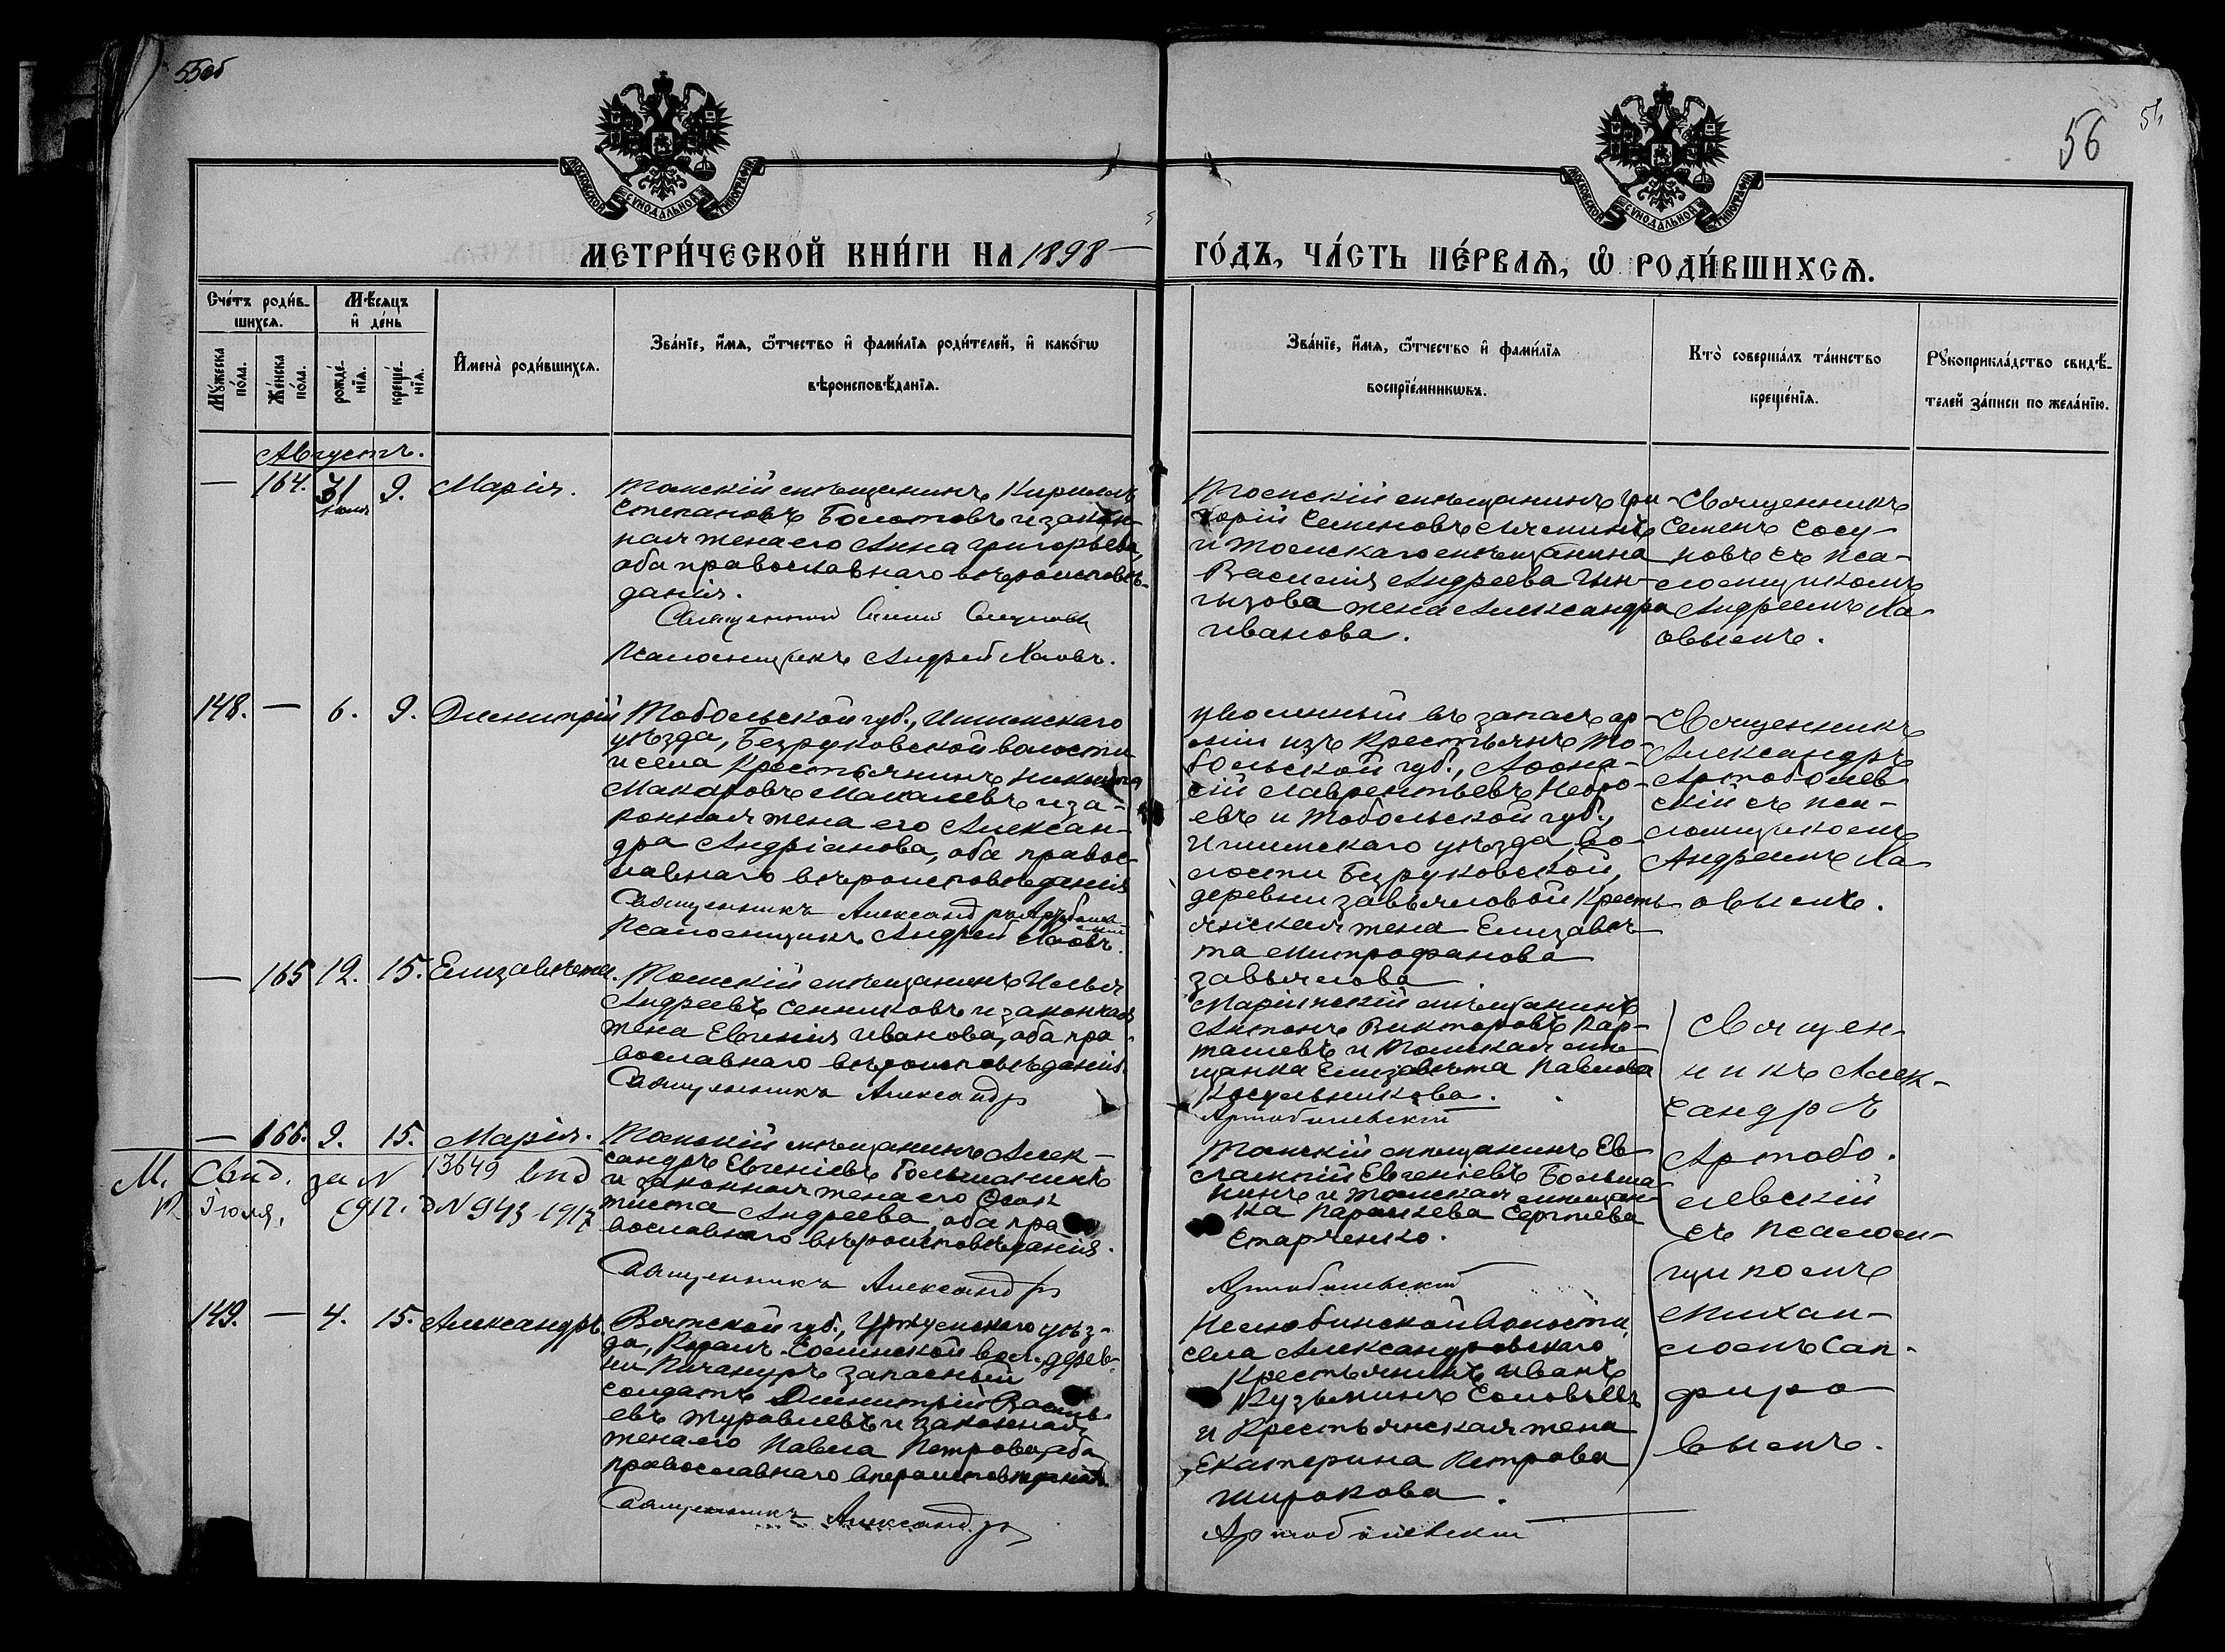 55об
56
МОСКОВСКОЙ СѴНОДАЛЬНОЙ ТИПОГРАФІИ
МОСКОВСКОЙ СѴНОДАЛЬНОЙ ТИПОГРАФІИ
МЕТРИ́ЧЕСКОЙ КНИ́ГИ НА 1898
ГО́ДЪ, ЧА́СТЬ ПЕ́РВАѦ, Ѽ РОДИ́ВШИХСѦ.
Сче́тъ роди́в-
шихсѧ.
Мꙋ́жеска по́ла.
Же́нска по́ла.
Мѣ́сѧцъ
и҆ де́нь
рожде́-
нїѧ.
креще́-
нїѧ.
И҆мена̀ роди́вшихсѧ.
Зва́нїе, и҆́мѧ, ѻ҆́тчество и҆ фами́лїѧ роди́телей, и҆ како́гѡ
вѣроисповѣ́данїѧ.
Зва́нїе, и҆́мѧ, ѻ҆́тчество и҆ фами́лїѧ
воспрїе́мникѡвъ.
Кто̀ соверша́лъ та́инство
креще́нїѧ.
Рꙋкоприкла́дство свидѣ́-
телей за́писи по жела́нїю.
Августъ.
—
164.
31
іюля
9.
Марія.
Томскій мѣщанинъ Кириллъ
Степановъ Болотовъ и закон-
ная жена его Анна Григорьева,
оба православнаго вѣроисповѣ-
данія.
Священникъ Симеонъ Сосуновъ
Псаломщикъ Андрей Лаовъ.
Томскій мѣщанинъ Гри-
горій Семеновъ
и Томскаго мѣщанина
Василія Андреева Чин-
гизова жена Александра
Иванова.
Священникъ
Семенъ Сосу-
новъ съ пса-
ломщикомъ
Андреемъ Ла-
овымъ.
148.
—
6.
9.
Димитрій
Тобольской губ., Ишимскаго
уѣзда, Безруковской волости
и села Крестьянинъ Никита
Макаровъ Макалевъ и за-
конная жена его Алексан-
дра Андріанова, оба правос-
лавнаго вѣроисповѣданія
Священникъ Александръ Артоболев-
скій
Псаломщикъ Андрей Лаовъ.
уволенный въ запасъ ар-
міи изъ крестьянъ То-
больской губ., Аѳона-
сій Лаврентьевъ
евъ и Тобольской губ.,
Ишимскаго уѣзда, во-
лости Безруковской,
деревни Завьяловой Кресть-
янская жена Елизаве-
та Митрофанова
Завьялова
Священникъ
Александръ
Артоболев-
скій съ пса-
ломщикомъ
Андреемъ Ла-
овымъ.
—
165
12.
15.
Елизавета.
Томскій мѣщанинъ Илья
Андреевъ Санниковъ и законная
жена Евгенія Иванова, оба пра-
вославнаго вѣроисповѣданія.
Священникъ Александръ
Маріинскій мѣщанинъ
Антонъ Викторовъ Кар-
ташевъ и Томская мѣ-
щанка Елизавета Павлова
Артоболевскій
Священ-
никъ Алек-
сандръ
Артобо-
левскій
съ псалом-
щикомъ
Михаи-
ломъ Сап-
фиро-
вымъ.
—
166.
9.
15.
Марія.
Томскій мѣщанинъ Алек-
сандръ Евгеніевъ Большанинъ
и законная жена его Ѳеок-
тиста Андреева, оба пра-
вославнаго вѣроисповѣданія.
Священникъ Александръ
Томскій мѣщанинъ Ев-
лампій Евгеніевъ Больша-
нинъ и Томская мѣщан-
ка Параскева Сергѣева
Старченко.
Артоболевскій
М. Свид. за N 13649 выд
Іюля, 1912. N 943 1917
149.
—
4.
15.
Александръ
Вятской губ., Уржумскаго уѣз-
да, вол. дерев-
ни запасный
солдатъ Димитрій Василь-
евъ Журавлевъ и законная
жена его Павла Петрова, оба
православнаго вѣроисповѣданія.
Священникъ Александръ
Нелюбинской волости,
села Александровскаго
Крестьянинъ Иванъ
Кузьминъ Соловьевъ
и Крестьянская жена
Екатерина Петрова
Широкова.
Артоболевскій